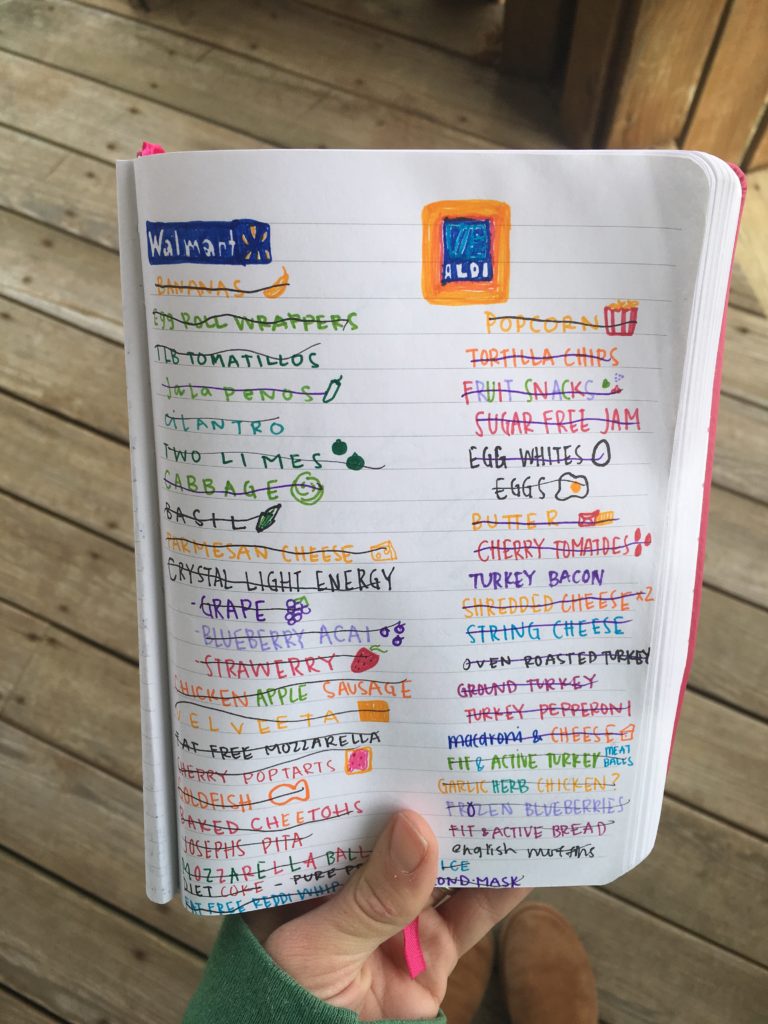 Walmart
BANANAS
EGG ROLL WRAPPERS
1LB TOMATILLOS
JalaPENOS
CILANTRO
TWO LIMES
CABBAGE
BASIL
PARMESAN CHEESE
CRYSTAL LIGHT ENERGY
-GRAPE
-BLUEBERRY ACAI
-STRAWERRY
CHICKEN APPLE SAUSAGE
VELVEETA
FAT FREE MOZZARELLA
CHERRY POPTARTS
GOLDFISH
BAKED CHEETOHS
JOSEPHS PITA
MOZZARELLA BALL
DIET COKE - PURE
FAT FREE REDDI WHIP
ALDI
POPCORN
TORTILLA CHIPS
FRUIT SNACKS
SUGAR FREE JAM
EGG WHITES
EGGS
BUTTER
CHERRY TOMATOES
TURKEY BACON
SHREDDED CHEESE x2
STRING CHEESE
OVEN ROASTED TURKEY
GROUND TURKEY
TURKEY PEPPERONI
macaroni & CHEESE
FIT & ACTIVE TURKEY MEAT BALLS
GARLIC HERB CHICKEN?
FROZEN BLUEBERRIES
FIT & ACTIVE BREAD
english muffins
MASK